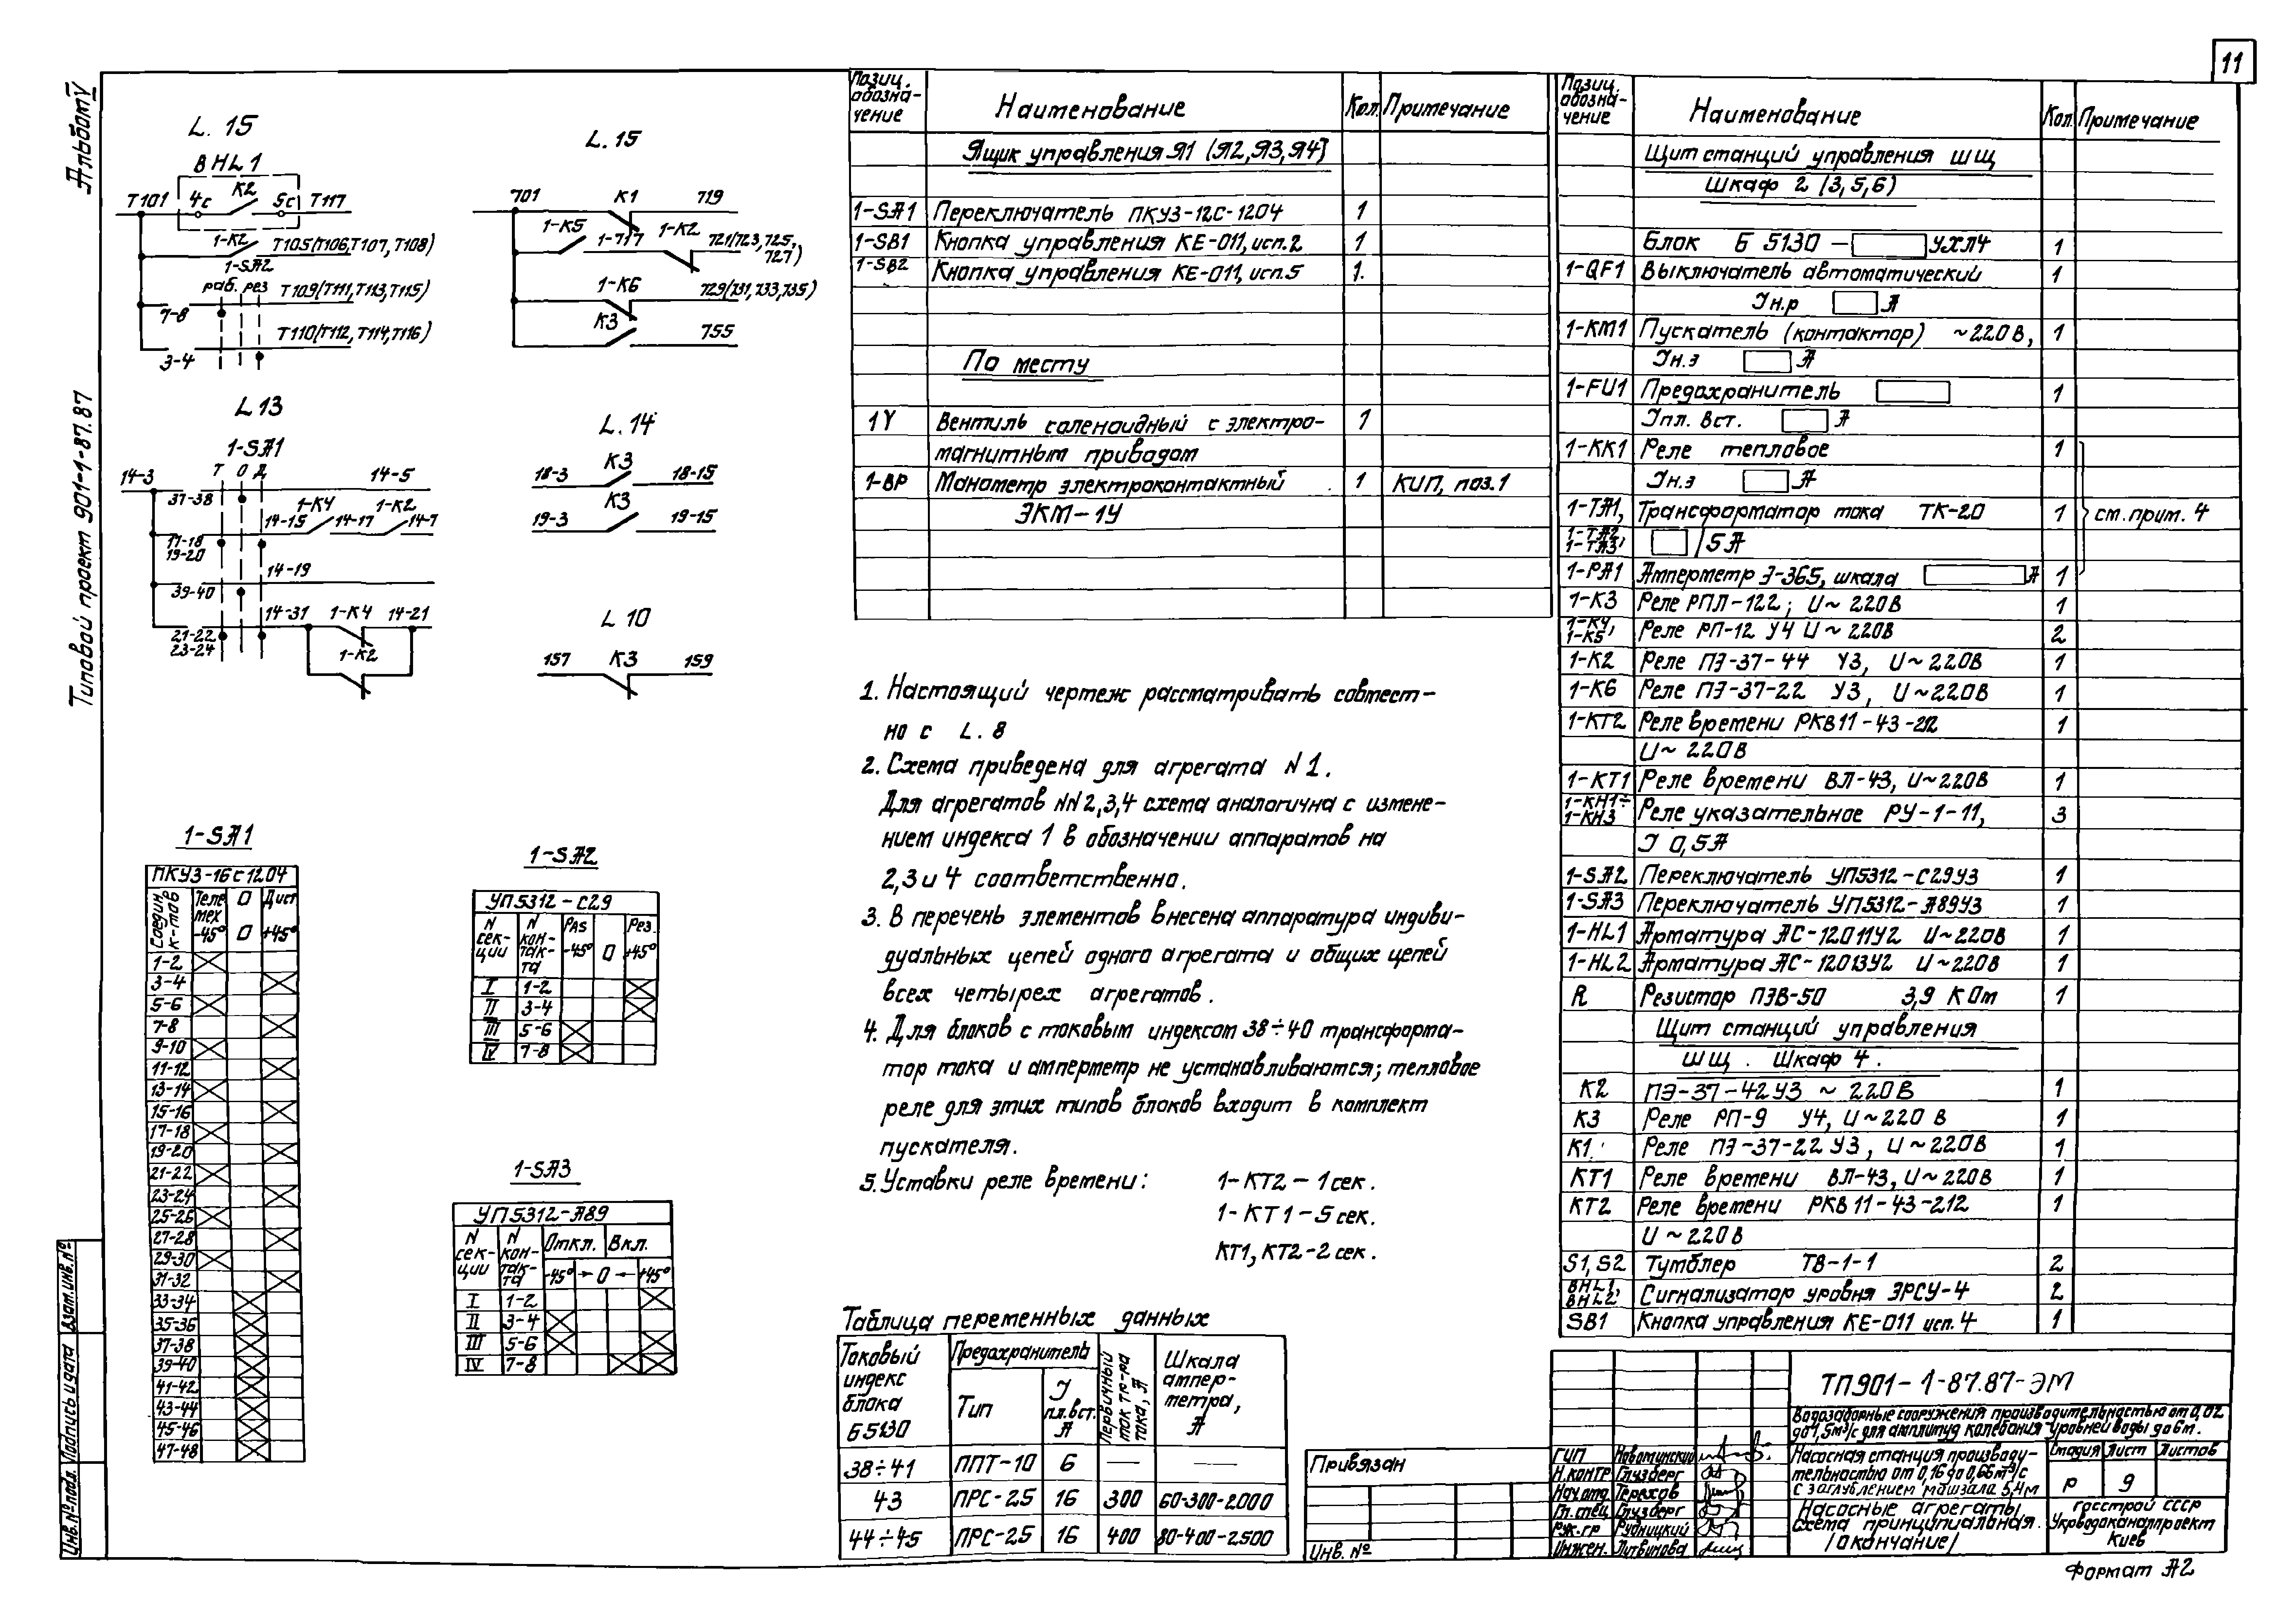 11
Альбом V
Типовой проект 901-1-87.87
L. 15
BHL1
T101 4с К2 5с T117
1-К2 T105(T106,T107,T108)
1-SA2
раб. рез T109(T111,T113,T115)
7-8
T110(T112,T114,T116)
3-4
L. 15
701 К1 719
1-К5 1-717 1-К2 721(723,725,
727)
1-К6 729(731,733,735)
К3 755
L 13
1-SA1
Т О Д
14-3 14-5
37-38
14-15 1-К4 14-17 1-К2 14-7
17-18
19-20
14-19
39-40
14-31 1-К4 14-21
21-22
23-24
1-К2
L. 14
18-3 К3 18-15
19-3 К3 19-15
L 10
157 К3 159
1-SA1
ПКУ3-16с1204
Соедин. к-тов Теле мех -45° 0 0 Дист +45°
1-2
3-4
5-6
7-8
9-10
11-12
13-14
15-16
17-18
19-20
21-22
23-24
25-26
27-28
29-30
31-32
33-34
35-36
37-38
39-40
41-42
43-44
45-46
47-48
1-SA2
УП5312-С29
N сек-ции N кон-так-та Раб -45° 0 Рез. +45°
I 1-2
II 3-4
III 5-6
IV 7-8
1-SA3
УП5312-А89
N сек-ции N кон-так-та Откл. Вкл.
-45° → 0 ← +45°
I 1-2
II 3-4
III 5-6
IV 7-8
Позиц. обозна-чение Наименование Кол. Примечание
Ящик управления Я1 (Я2,Я3,Я4)
1-SA1 Переключатель ПКУ3-12С-1204 1
1-SB1 Кнопка управления КЕ-011, исп.2 1
1-SB2 Кнопка управления КЕ-011, исп.5 1.
По месту
1Y Вентиль соленоидный с электро- 1
магнитным приводом
1-BP Манометр электроконтактный 1 КИП, поз.1
ЭКМ-1У
1. Настоящий чертеж рассматривать совмест-
но с L. 8
2. Схема приведена для агрегата N 1.
Для агрегатов NN 2,3,4 схема аналогична с измене-
нием индекса 1 в обозначении аппаратов на
2,3 и 4 соответственно.
3. В перечень элементов внесена аппаратура индиви-
дуальных цепей одного агрегата и общих цепей
всех четырех агрегатов.
4. Для блоков с токовым индексом 38÷40 трансформа-
тор тока и амперметр не устанавливаются; тепловое
реле для этих типов блоков входит в комплект
пускателя.
5. Уставки реле времени: 1-КТ2 - 1 сек.
1-КТ1-5 сек.
КТ1, КТ2-2 сек.
Таблица переменных данных
Токовый индекс блока Б5130 Предохранитель Тип I пл.вст. А Первичный ток тр-ра тока, А Шкала ампер-метра, А
38÷41 ППТ-10 6 — —
43 ПРС-25 16 300 60-300-2000
44÷45 ПРС-25 16 400 80-400-2500
Позиц. обозна-чение Наименование Кол. Примечание
Щит станций управления ШЩ
Шкаф 2 (3,5,6)
Блок Б 5130 - УХЛ4 1
1-QF1 Выключатель автоматический 1
Iн.р А
1-КМ1 Пускатель (контактор) ~220В, 1
Iн.э А
1-FU1 Предохранитель 1
Iпл. вст. А
1-КК1 Реле тепловое 1
Iн.э А
1-ТА1, Трансформатор тока ТК-20 1 см.прим. 4
1-ТА2, 1-ТА3, /5А
1-РА1 Амперметр Э-365, шкала А 1
1-К3 Реле РПЛ-122; U~220В 1
1-К4, 1-К5, Реле РП-12 У4 U~220В 2
1-К2 Реле ПЭ-37-44 У3, U~220В 1
1-К6 Реле ПЭ-37-22 У3, U~220В 1
1-КТ2 Реле времени РКВ11-43-212 1
U~220В
1-КТ1 Реле времени ВЛ-43, U~220В 1
1-КН1÷ 1-КН3 Реле указательное РУ-1-11, 3
I 0,5А
1-SA2 Переключатель УП5312-С29У3 1
1-SA3 Переключатель УП5312-А89У3 1
1-HL1 Арматура АС-12011У2 U~220В 1
1-HL2 Арматура АС-12013У2 U~220В 1
R Резистор ПЭВ-50 3,9 КОм 1
Щит станций управления
ШЩ. Шкаф 4.
К2 ПЭ-37-42У3 ~220В 1
К3 Реле РП-9 У4, U~220 В 1
К1 Реле ПЭ-37-22 У3, U~220В 1
КТ1 Реле времени ВЛ-43, U~220В 1
КТ2 Реле времени РКВ11-43-212 1
U~220В
S1, S2 Тумблер ТВ-1-1 2
BHL1, BHL2, Сигнализатор уровня ЭРСУ-4 2
SB1 Кнопка управления КЕ-011 исп. 4 1
ТП901-1-87.87-ЭМ
Водозаборные сооружения производительностью от 0,02
до 1,5м³/с для амплитуд колебания уровней воды до 6м.
Насосная станция производи-
тельностью от 0,16 до 0,66м³/с
с заглублением машзала 5,4м
Стадия Лист Листов
Р 9
Насосные агрегаты
Схема принципиальная.
(окончание)
Госстрой СССР
Укрводоканалпроект
Киев
ГИП Новоминский
Н.контр Глузберг
Нач.отд Терехов
Гл.спец Глузберг
Рук.гр Рудницкий
Инжен. Литвинова
Привязан
Инв. №
Взам.инв.№
Подпись и дата
Инв.№ подл.
Формат А2